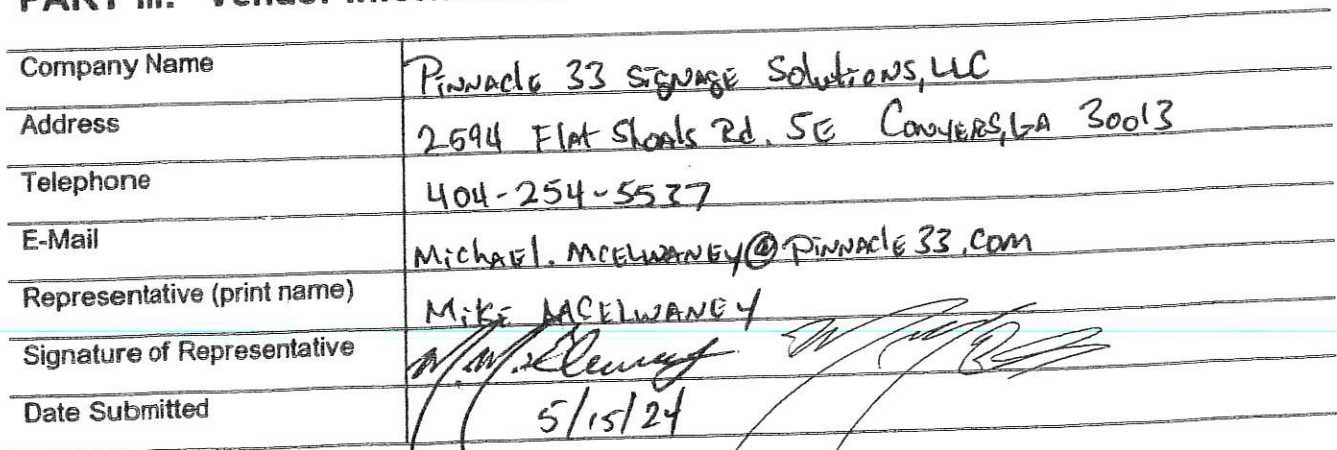 PART III. Vendor
Company Name Pinnacle 33 Signage Solutions, LLC
Address 2594 Flat Shoals Rd. SE Conyers, GA 30013
Telephone 404-254-5537
E-Mail Michael.McElwaney@Pinnacle33.com
Representative (print name) Mike McElwaney
Signature of Representative
Date Submitted 5/15/24